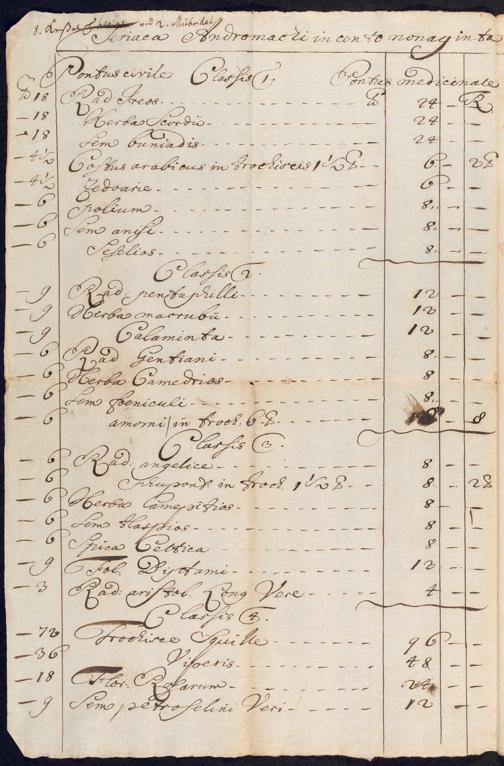 Teriaca Andromachi in cento nonaginta
Pontus civile Classis 1. Pontus medicinale
18 Rad Ireos 24
18 Herba Scordii 24
18 Sem buniadis 24
4½ Costus arabicus in trochisces 1½ 6 2
4½ Zedoarie 6
6 Polium 8
6 Sem anisi 8
6 Seselios 8
Classis 2.
9 Rad: pentaphilli 12
9 Herba marrubii 12
9 Calaminta 12
6 Rad Gentiani 8
6 Herba Camedrios 8
6 Sem foeniculi 8
6 amomi in troch. 6 8
Classis 3.
6 Rad: angelice 8
6 in troch. 1½ 8 2
6 Herba Camepitios 8
6 Sem tlaspios 8
6 Spica Celtica 8
9 Fol. Dijttami 12
3 Rad: aristol. Long Vere 4
Classis 4.
72 Trochisce Squille 96
36 Viperis 48
18 Flor: Rosarum 24
9 Sem petroselini Veri 12